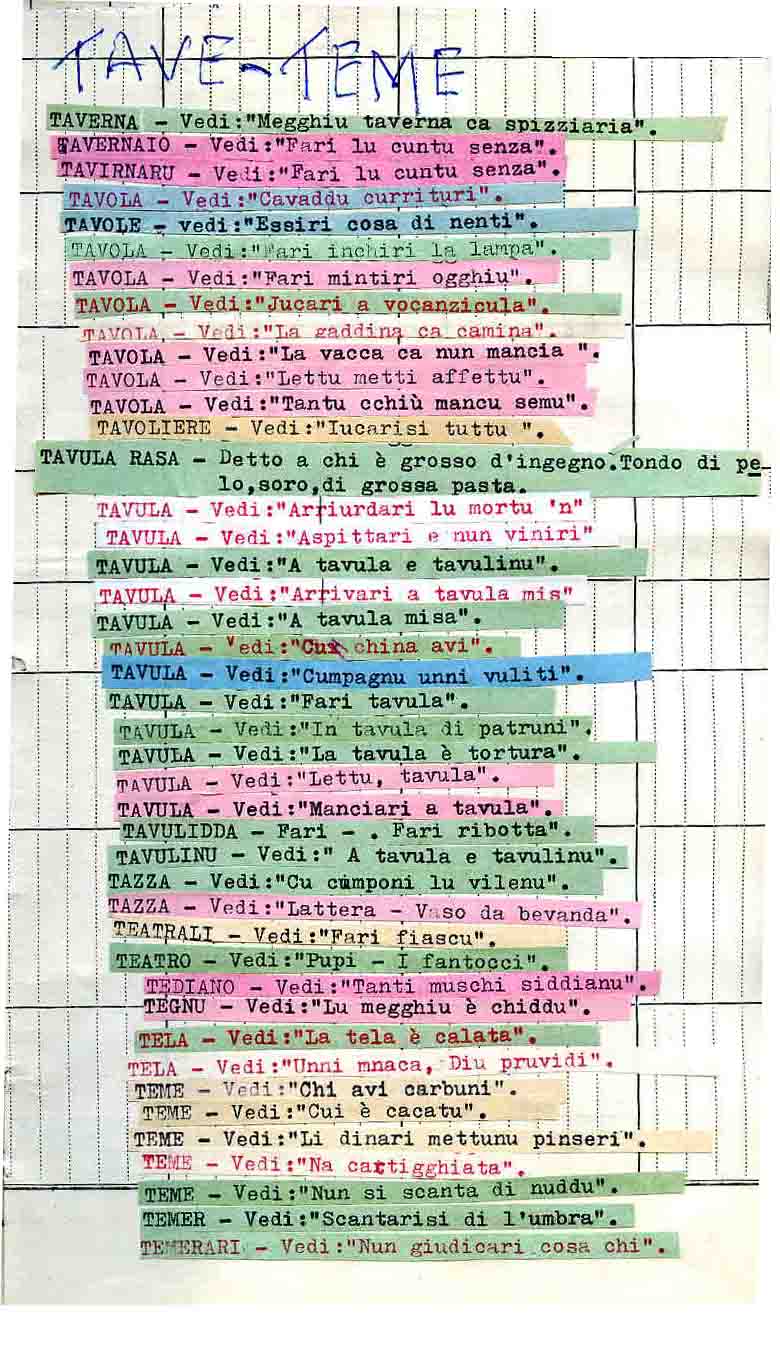 TAVE-TEME
TAVERNA - Vedi:"Megghiu taverna ca spizziaria".
TAVERNAIO - Vedi:"Fari lu cuntu senza".
TAVIRNARU - Vedi:"Fari lu cuntu senza".
TAVOLA - Vedi:"Cavaddu currituri".
TAVOLE - vedi:"Essiri cosa di nenti".
TAVOLA - Vedi:"Fari inchiri la lampa".
TAVOLA - Vedi:"Fari mintiri ogghiu".
TAVOLA - Vedi:"Jucari a vocanzicula".
TAVOLA - Vedi:"La gaddina ca camina".
TAVOLA - Vedi:"La vacca ca nun mancia ".
TAVOLA - Vedi:"Lettu metti affettu".
TAVOLA - Vedi:"Tantu cchiù mancu semu".
TAVOLIERE - Vedi:"Iucarisi tuttu ".
TAVULA RASA - Detto a chi è grosso d'ingegno.Tondo di pe-
lo,soro,di grossa pasta.
TAVULA - Vedi:"Arriurdari lu mortu 'n"
TAVULA - Vedi:"Aspittari e nun viniri"
TAVULA - Vedi:"A tavula e tavulinu".
TAVULA - Vedi:"Arrivari a tavula mis"
TAVULA - Vedi:"A tavula misa".
TAVULA - Vedi:"Cui china avi".
TAVULA - Vedi:"Cumpagnu unni vuliti".
TAVULA - Vedi:"Fari tavula".
TAVULA - Vedi:"In tavula di patruni".
TAVULA - Vedi:"La tavula è tortura".
TAVULA - Vedi:"Lettu, tavula".
TAVULA - Vedi:"Manciari a tavula".
TAVULIDDA - Fari - . Fari ribotta".
TAVULINU - Vedi:" A tavula e tavulinu".
TAZZA - Vedi:"Cu cumponi lu vilenu".
TAZZA - Vedi:"Lattera - Vaso da bevanda".
TEATRALI - Vedi:"Fari fiascu".
TEATRO - Vedi:"Pupi - I fantocci".
TEDIANO - Vedi:"Tanti muschi siddianu".
TEGNU - Vedi:"Lu megghiu è chiddu".
TELA - Vedi:"La tela è calata".
TELA - Vedi:"Unni mnaca, Diu pruvidi".
TEME - Vedi:"Chi avi carbuni".
TEME - Vedi:"Cui è cacatu".
TEME - Vedi:"Li dinari mettunu pinseri".
TEME - Vedi:"Na cattigghiata".
TEME - Vedi:"Nun si scanta di nuddu".
TEMER - Vedi:"Scantarisi di l'umbra".
TEMERARI - Vedi:"Nun giudicari cosa chi".